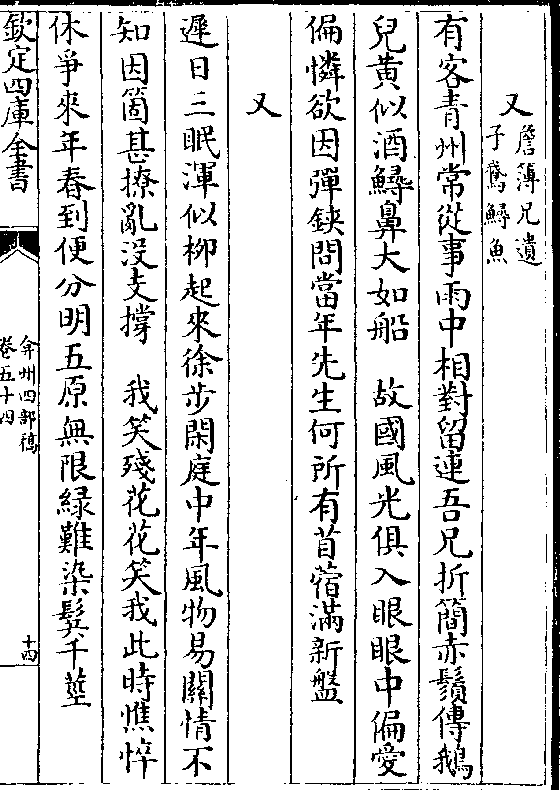 又
詹簿兄遺
子鵞鱘魚
有客青州常從事雨中相對留連吾兄折簡赤鬚傳鵝
兒黄似酒鱘鼻大如船　故國風光俱入眼眼中偏愛
偏憐欲因彈鋏問當年先生何所有苜蓿滿新盤
又
遲日三眠渾似柳起來徐步閑庭中年風物易關情不
知因箇甚撩亂没支撐　我笑殘花花笑我此時憔悴
休爭來年春到便分明五原無限緑難染鬂千莖
欽定四庫全書
弇州四部稿
卷五十四
十四